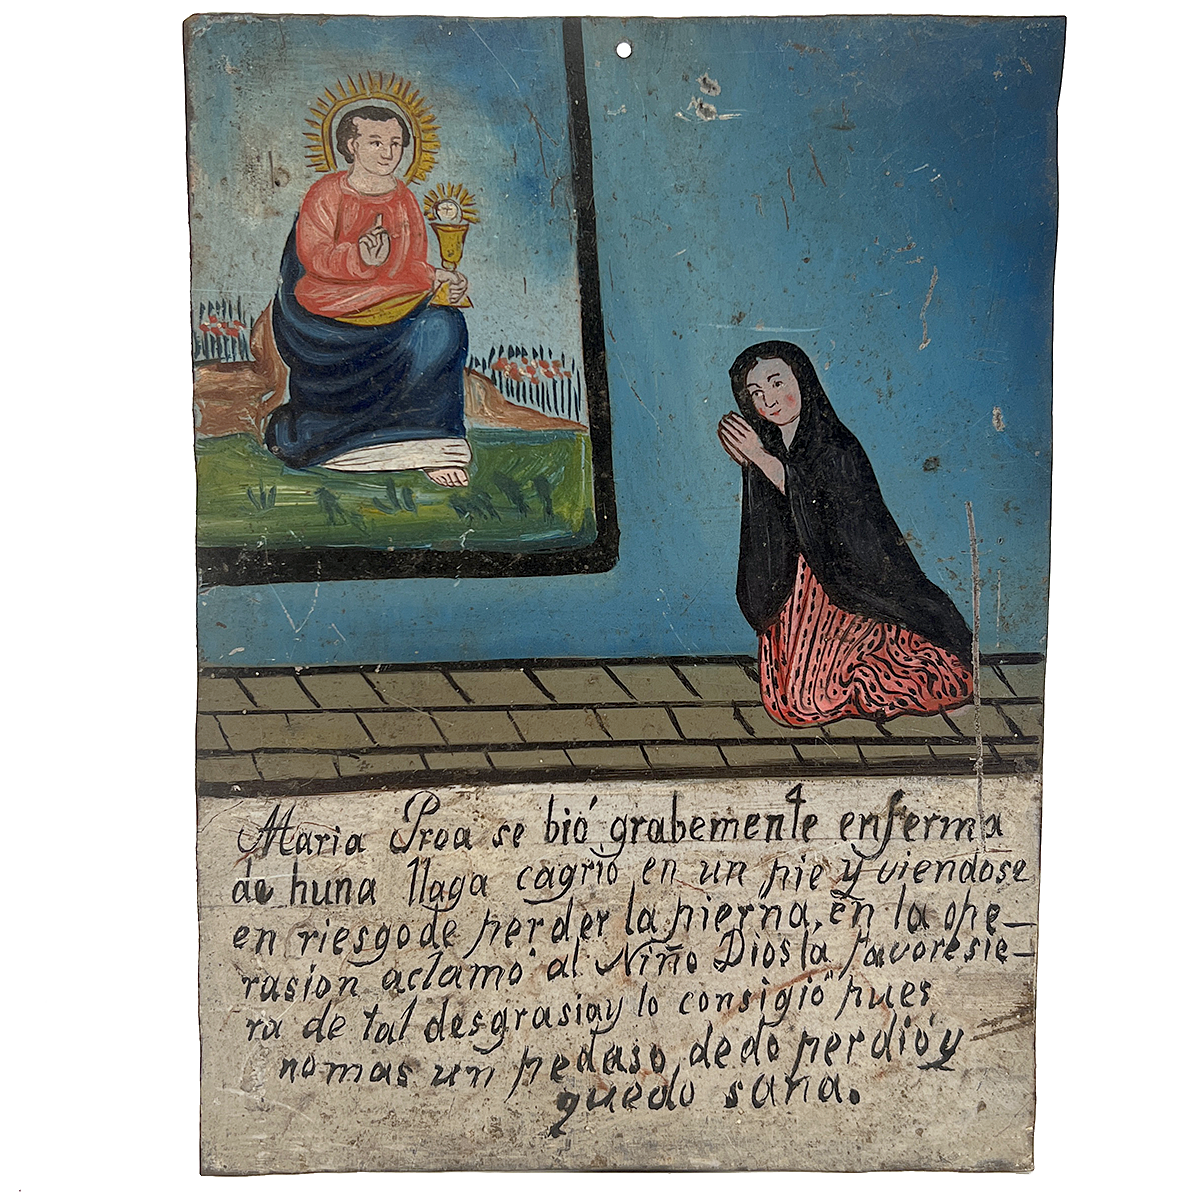 Maria Proa se bió grabemente enferma
de huna llaga cagrio en un pie y viendose
en riesgo de perder la pierna, en la ope-
rasion aclamo al Niño Dios la favoresie-
ra de tal desgrasia y lo consigió pues
nomas un pedaso dedo perdió y
quedo sana.